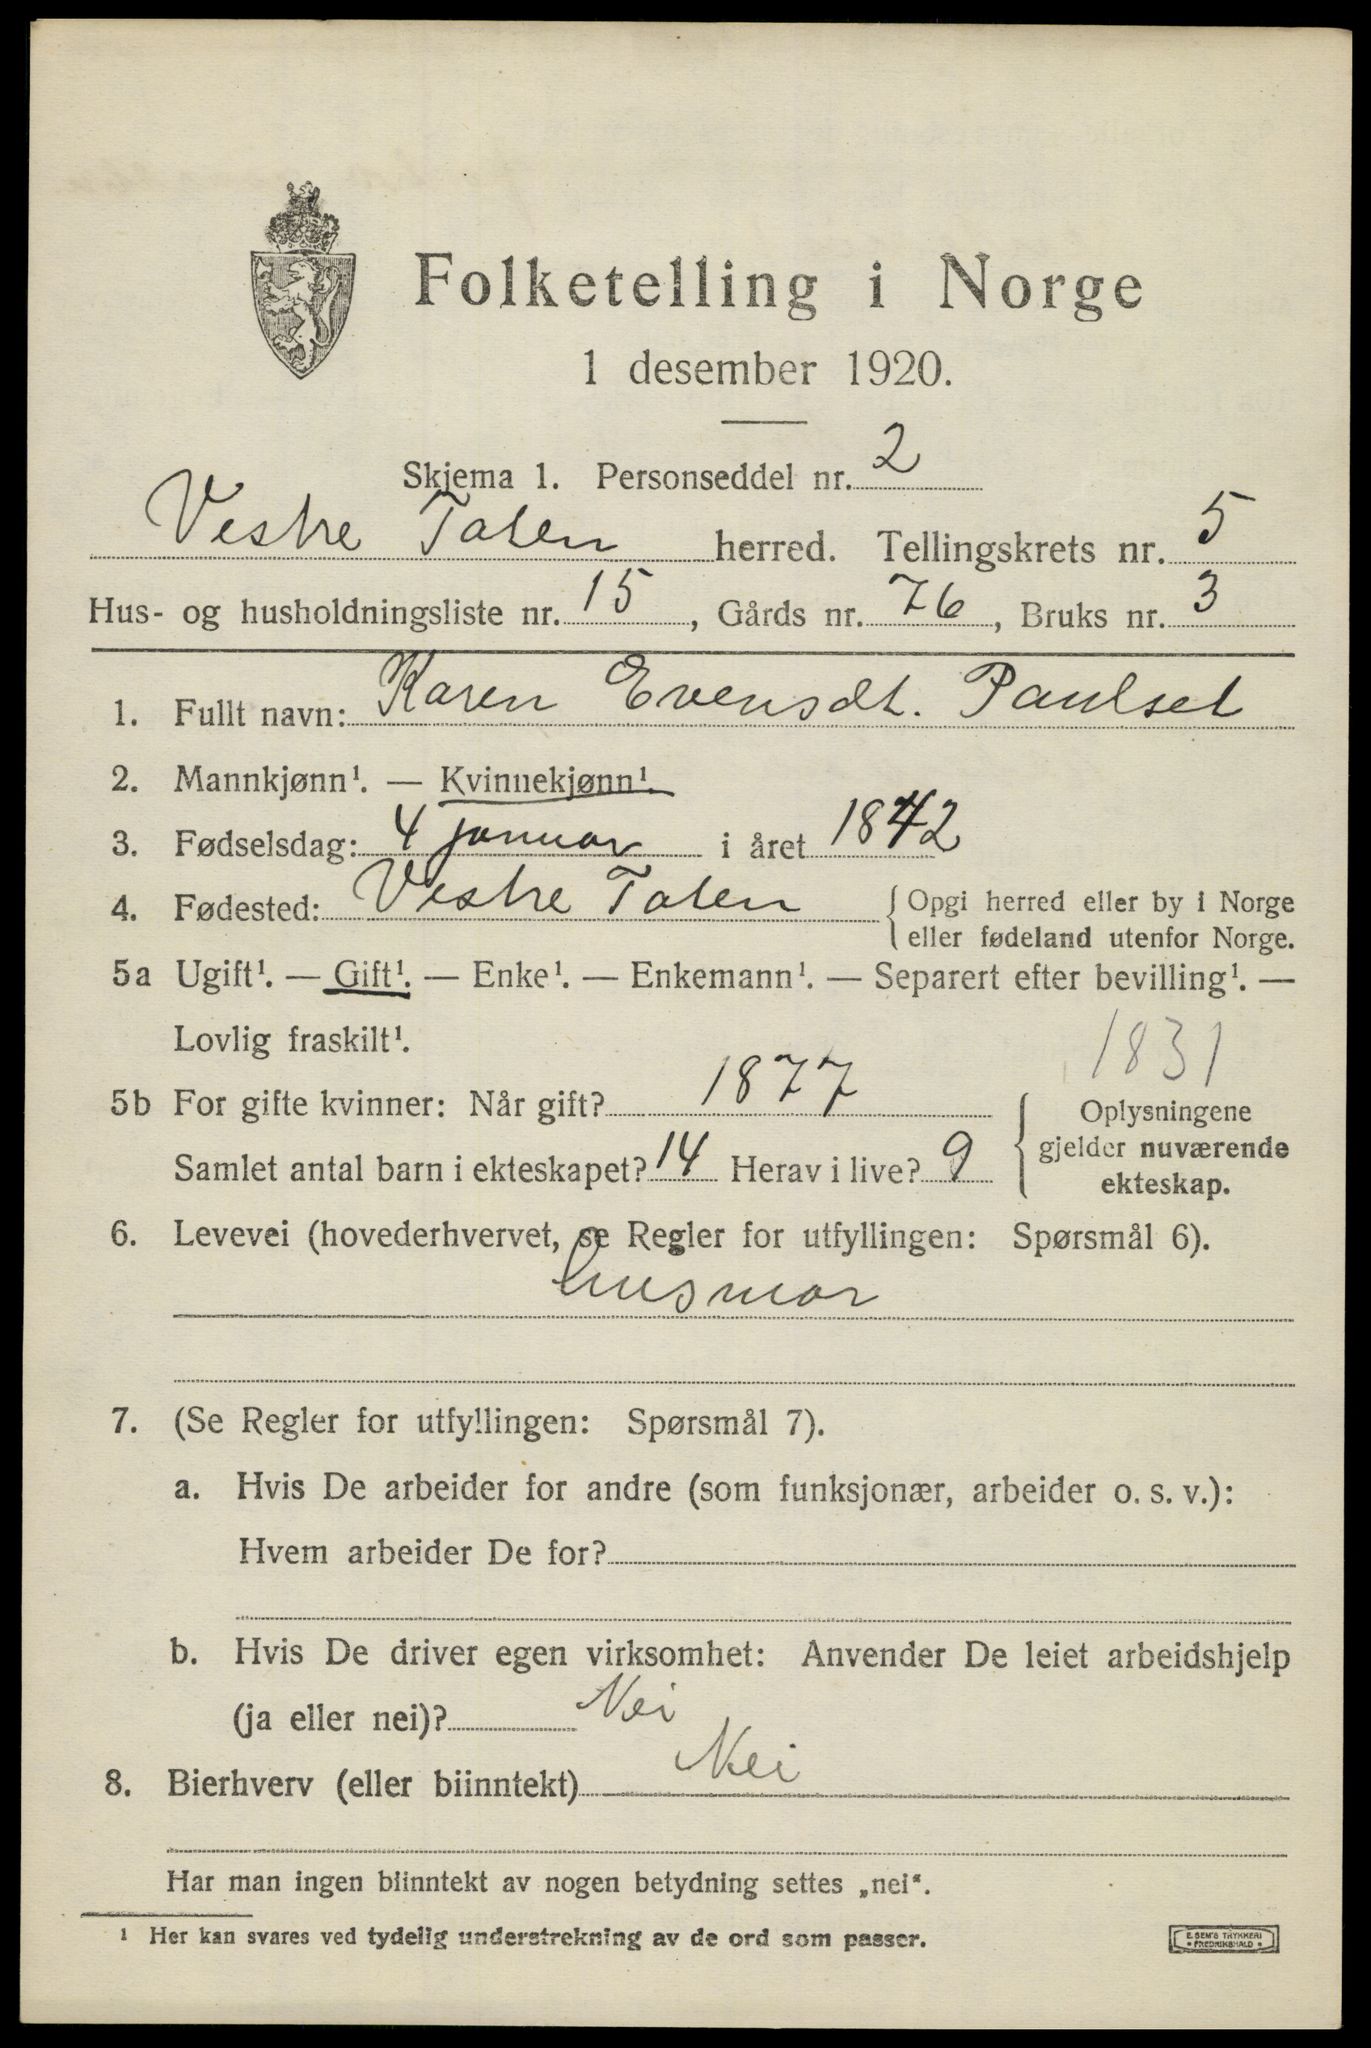 Folketelling i Norge
1 desember 1920.
Skjema 1. Personseddel nr. 2
Vestre Toten herred. Tellingskrets nr. 5
Hus- og husholdningsliste nr. 15, Gårds nr. 76, Bruks nr. 3
1. Fullt navn: Karen Evensdt. Paulset
2. Mannkjønn¹. — Kvinnekjønn¹.
3. Fødselsdag: 4 januar i året 1842
4. Fødested: Vestre Toten { Opgi herred eller by i Norge
eller fødeland utenfor Norge.
5a Ugift¹. — Gift¹. — Enke¹. — Enkemann¹. — Separert efter bevilling¹. —
Lovlig fraskilt¹.
1831
5b For gifte kvinner: Når gift? 1877
Samlet antal barn i ekteskapet? 14 Herav i live? 9
{ Oplysningene
gjelder nuværende
ekteskap.
6. Levevei (hovederhvervet, se Regler for utfyllingen: Spørsmål 6).
husmor
7. (Se Regler for utfyllingen: Spørsmål 7).
a. Hvis De arbeider for andre (som funksjonær, arbeider o. s. v.):
Hvem arbeider De for?
b. Hvis De driver egen virksomhet: Anvender De leiet arbeidshjelp
(ja eller nei)? Nei
8. Bierhverv (eller biinntekt) Nei
Har man ingen biinntekt av nogen betydning settes „nei“.
¹ Her kan svares ved tydelig understrekning av de ord som passer.
E. SEM'S TRYKKERI
• FREDRIKSHALD •